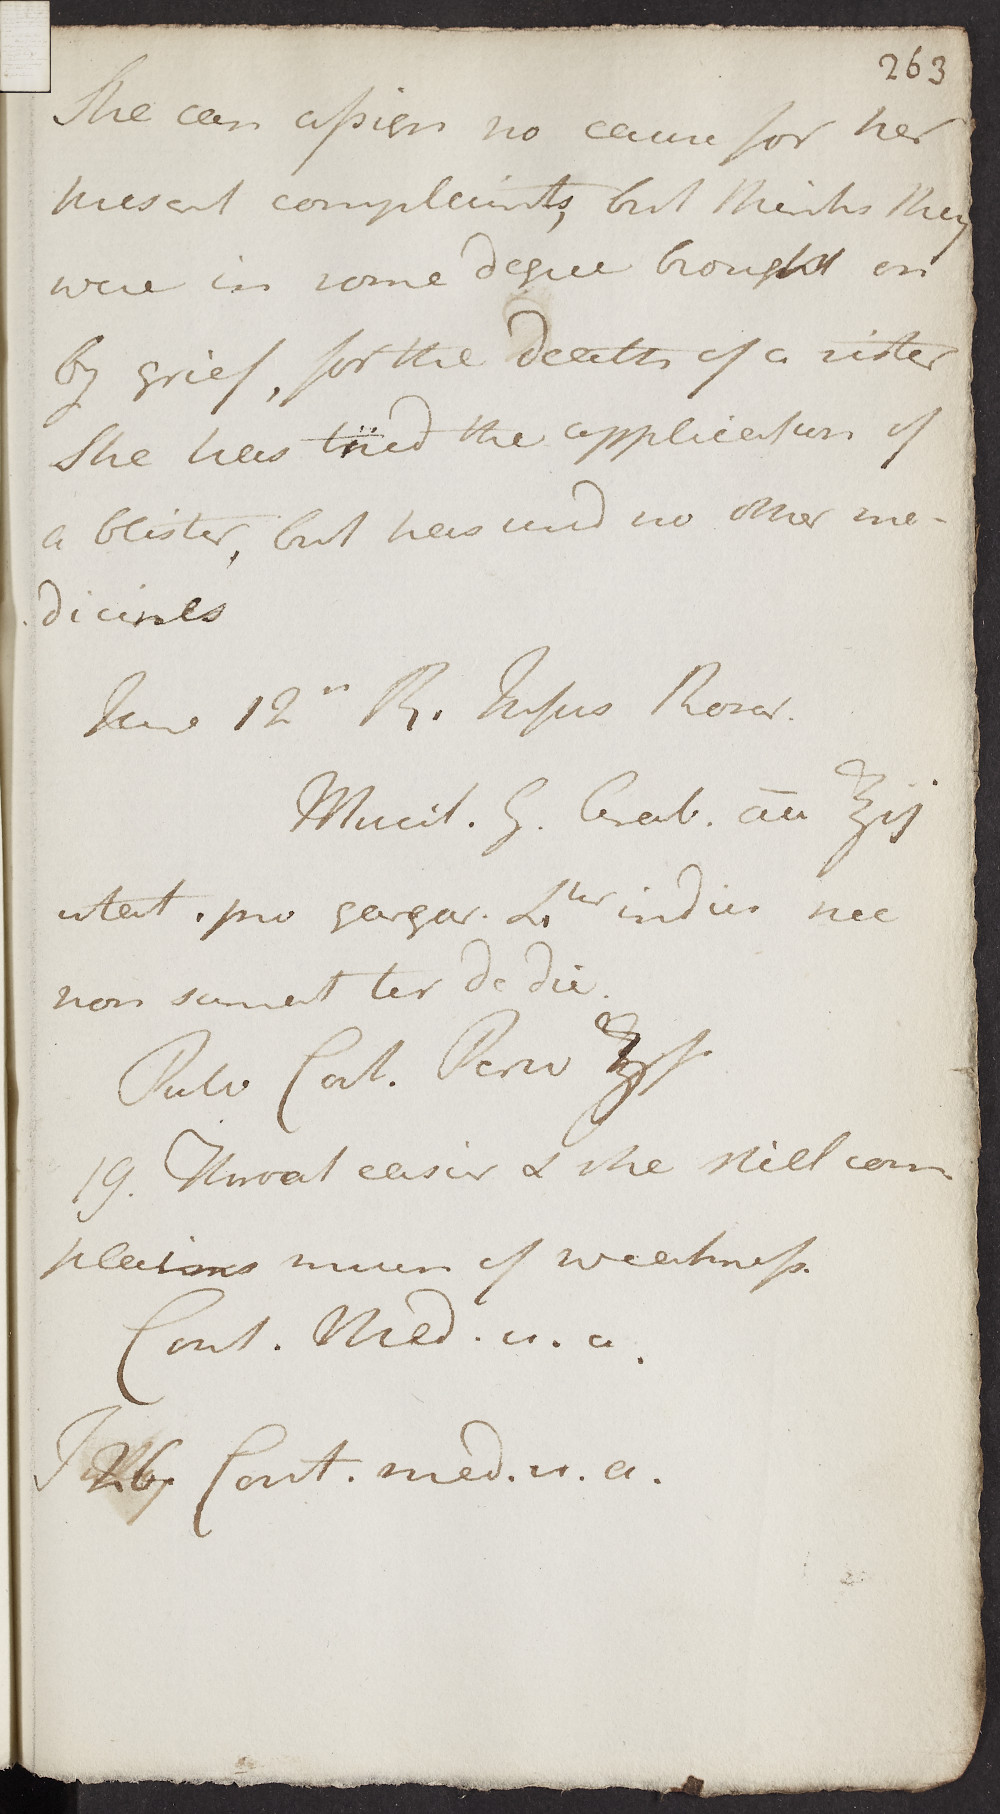 263
She can assign no cause for her
present complaints, but thinks they
were in some degree brought on
by grief, for the death of a sister
She has tried the application of
a blister, but has used no other me-
dicines
June 12th ℞. Infus Rosar.
Mucil. G. Arab. āā ℥ij
utat. pro gargar. 4ter indies nec
non sumat ter de die.
Pulv Cort. Peruv ʒſs
19. Throat easier & she still com
plains much of weakness.
Cont. Med. u. a.
26. Cont. med. u. a.